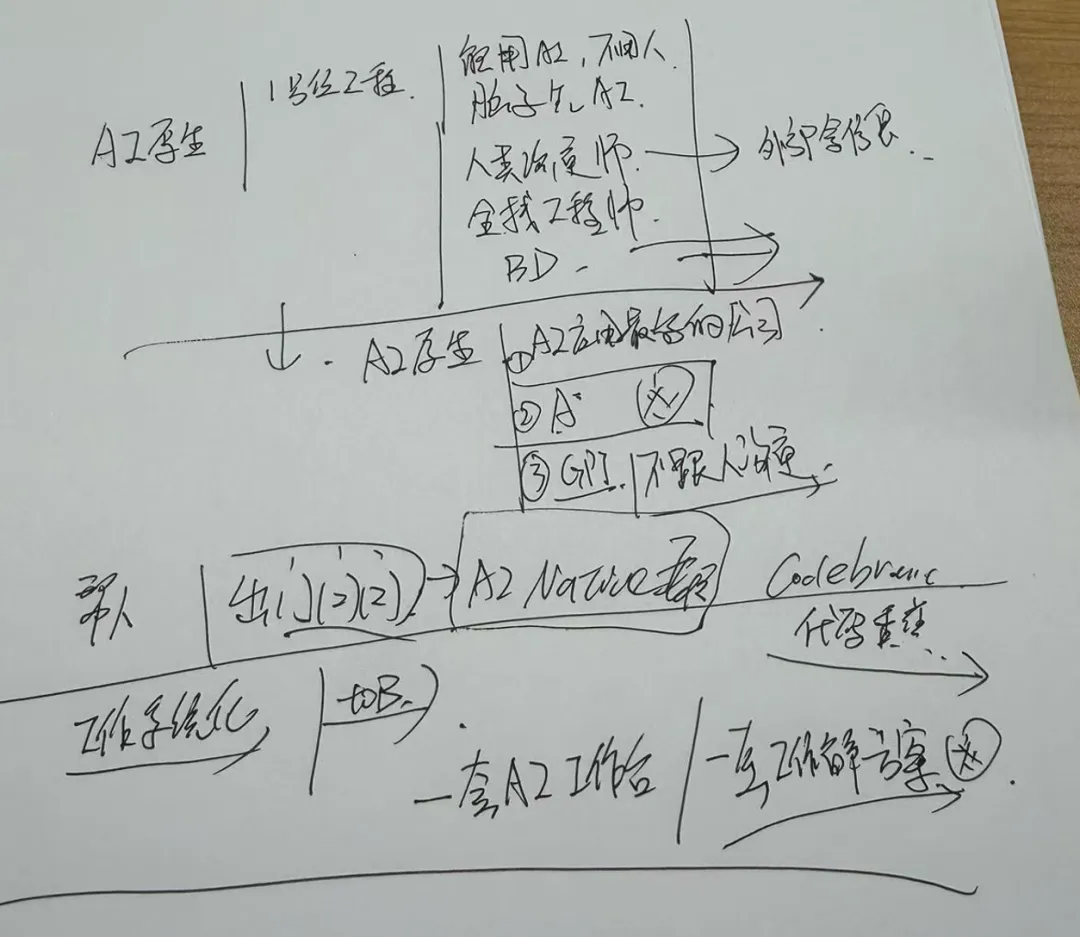 AI原生
1号位工程.
能用AI,不用人.
脑子先AI.
人类沟通师. → 外部含信息..
全栈工程师.
BD
AI原生
① AI应用最好的公司.
② A
③ GPT. 不跟人沟通.
帮人
出(1)(2)(2) → AI Native
Codebrowic
代码重
工作系统化
toB.
一套AI工作台
一套工作解方案